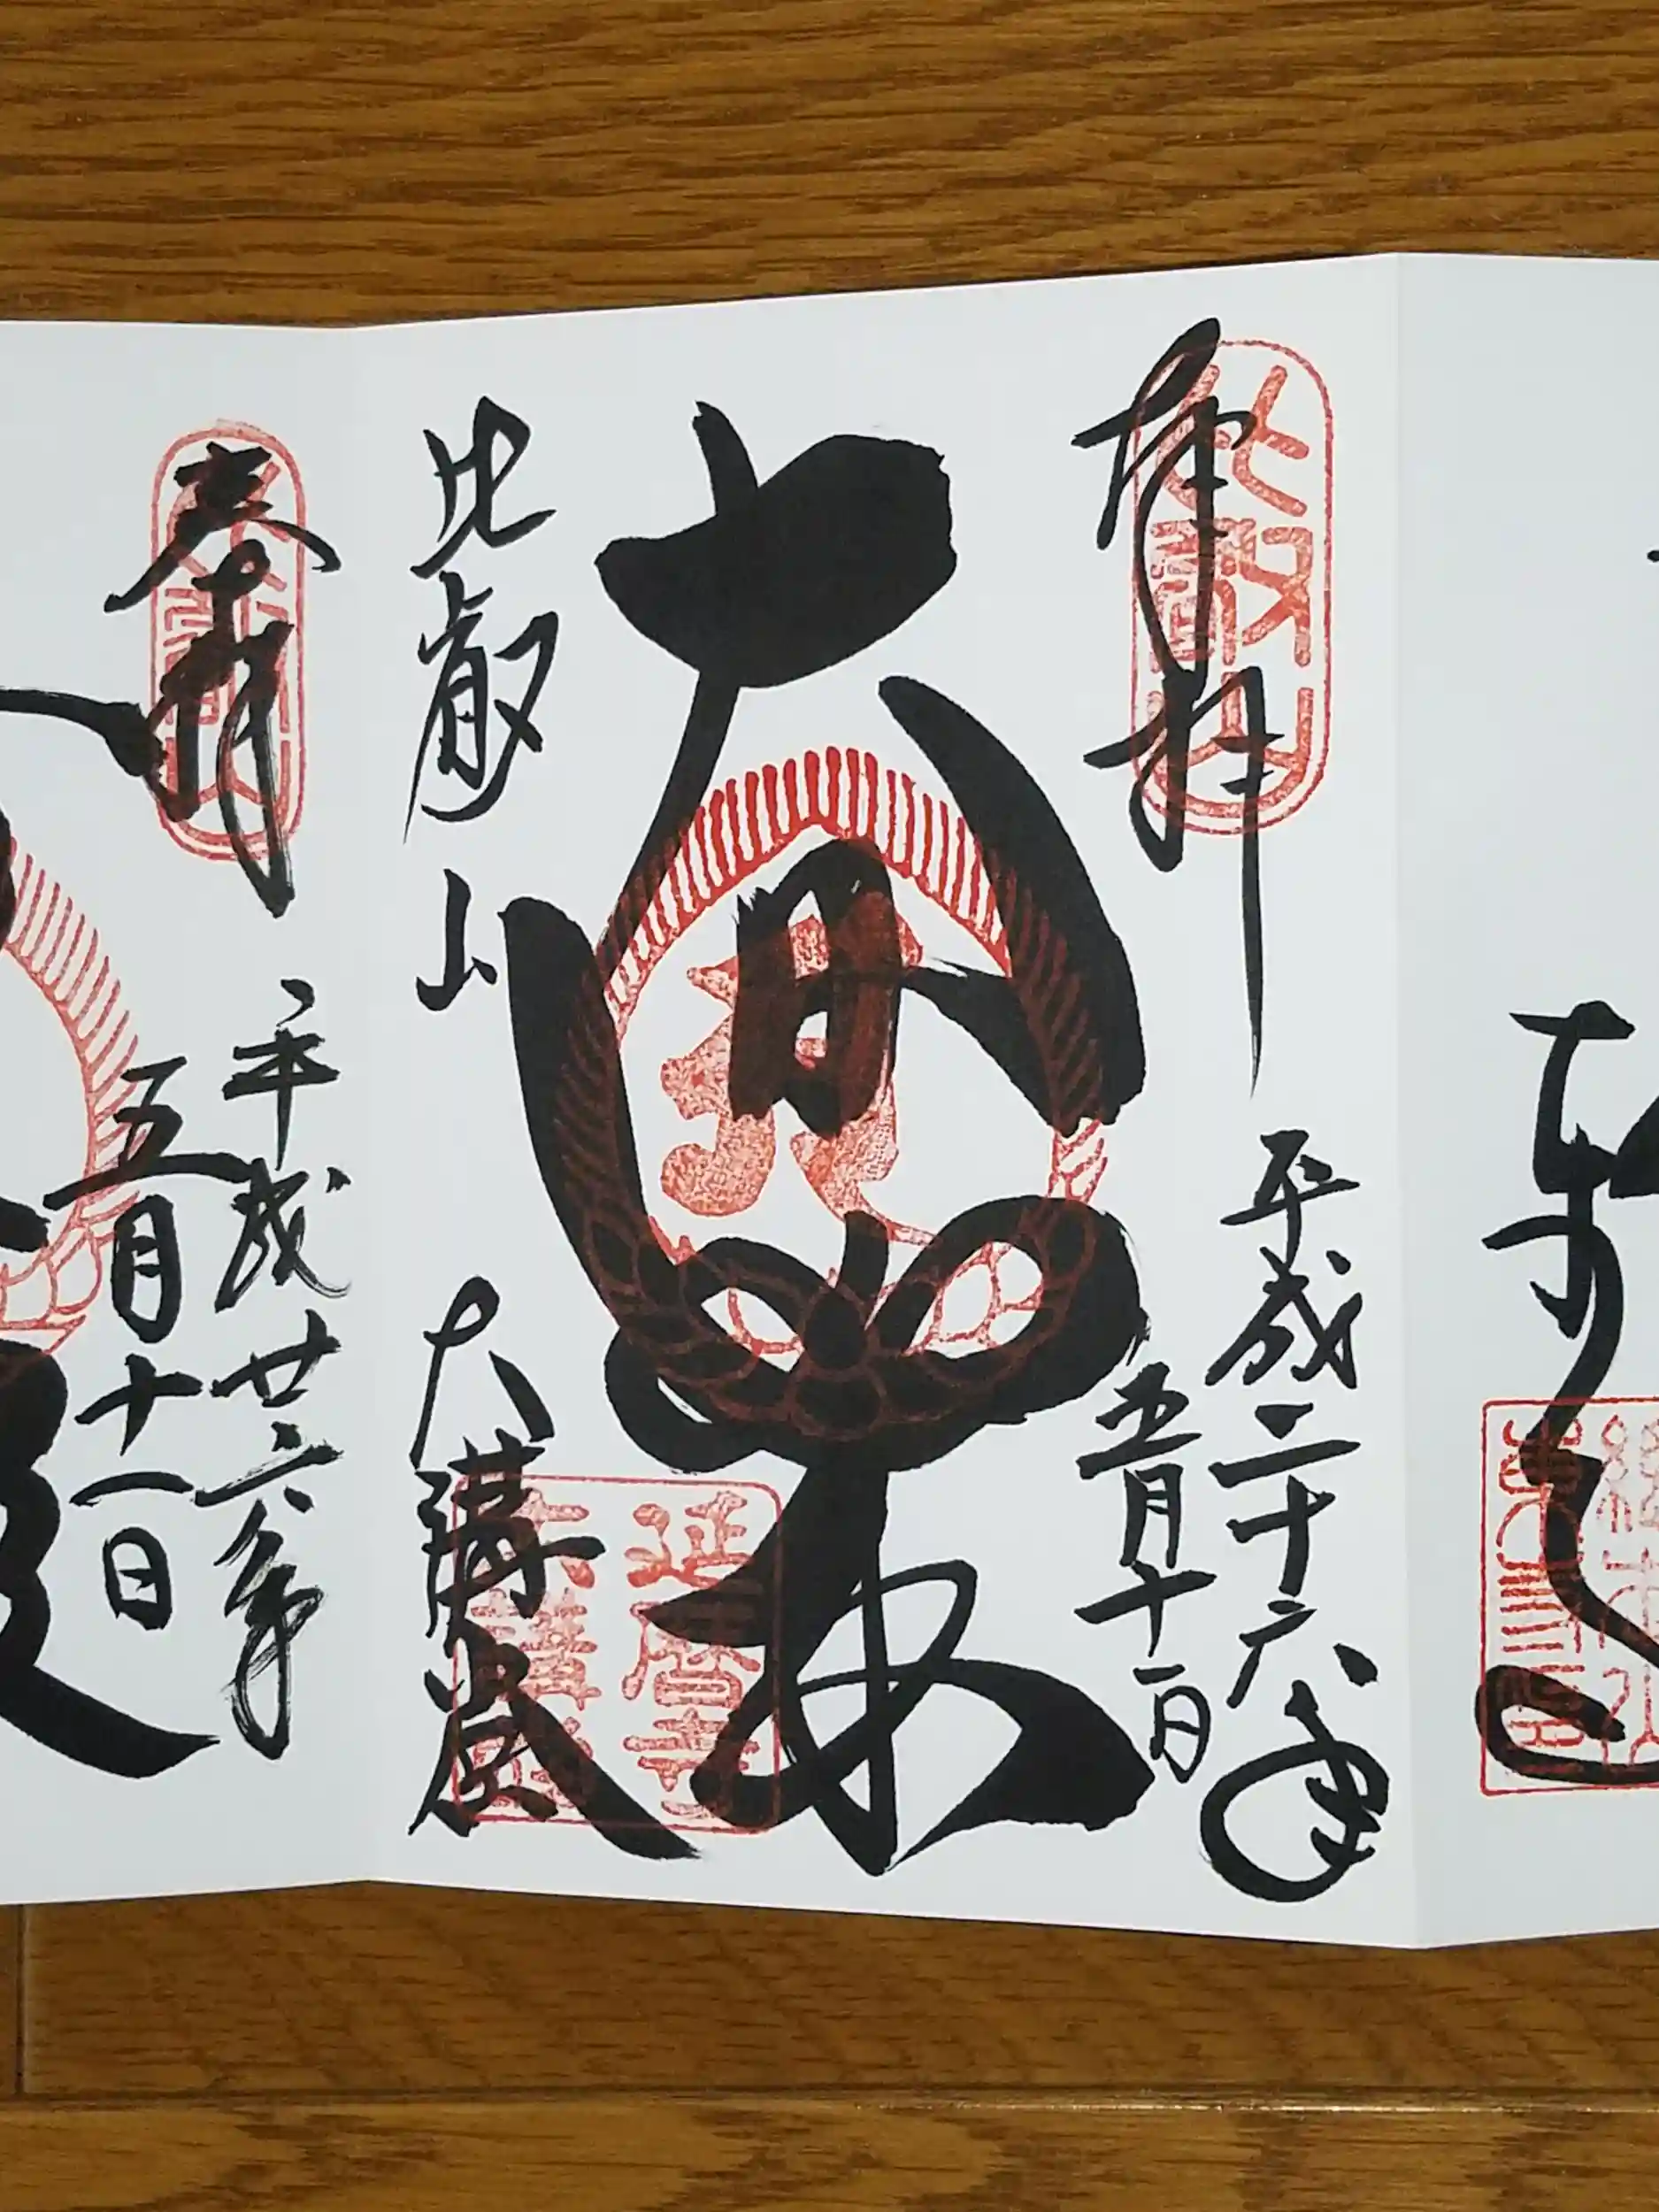 奉拝
比叡山
平成二十六年
五月十一日
大日如来
比叡山
大講堂
延暦寺
大講堂
奉拝
平成廿六年
五月十一日